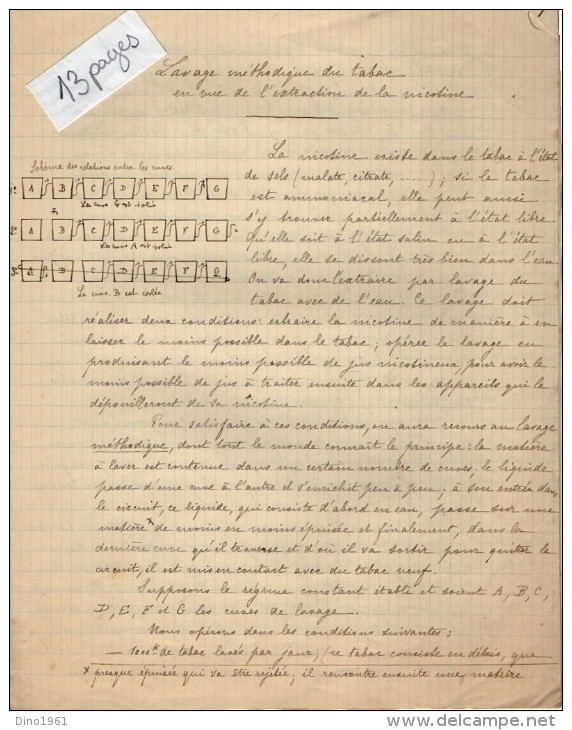 13 pages
Lavage méthodique du tabac
en vue de l'extraction de la nicotine
Schéma des relations entre les cuves
1° A B C D E F G
La cuve G est isolée
2° A B C D E F G
La cuve A est isolée
3° A B C D E F G
La cuve B est isolée
La nicotine existe dans le tabac à l'état
de sels (malate, citrate, ....) ; si le tabac
est ammoniacal, elle peut aussi
s'y trouver partiellement à l'état libre.
Qu'elle soit à l'état salin ou à l'état
libre, elle se dissout très bien dans l'eau.
On va donc l'extraire par lavage du
tabac avec de l'eau. Ce lavage doit
réaliser deux conditions : extraire la nicotine de manière à en
laisser le moins possible dans le tabac ; opérer le lavage en
produisant le moins possible de jus nicotineux, pour avoir le
moins possible de jus à traiter ensuite dans les appareils qui le
dépouilleront de sa nicotine.
Pour satisfaire à ces conditions, on aura recours au lavage
méthodique, dont tout le monde connaît le principe : la matière
à laver est contenue dans un certain nombre de cuves ; le liquide
passe d'une cuve à l'autre et s'enrichit peu à peu ; à son entrée dans
le circuit, ce liquide, qui consiste d'abord en eau, passe sur une
matière x de moins en moins épuisée et finalement, dans la
dernière cuve qu'il traverse et d'où il va sortir pour quitter le
circuit, il est mis en contact avec du tabac neuf.
Supposons le régime constant établi et soient A, B, C,
D, E, F et G les cuves de lavage.
Nous opérons dans les conditions suivantes :
— 1000 k de tabac lavés par jour ; (ce tabac consiste en débris, que
x presque épuisée qui va être rejetée ; il rencontre ensuite une matière
Dino1961
delcampe.net